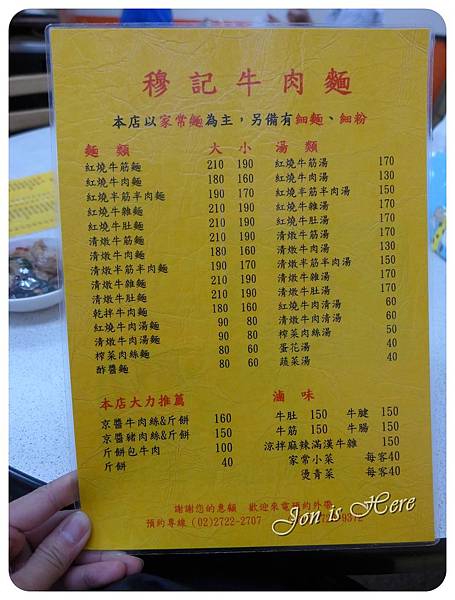 穆記牛肉麵
本店以家常麵為主，另備有細麵、細粉
麵類 大 小
紅燒牛筋麵 210 190
紅燒牛肉麵 180 160
紅燒半筋半肉麵 190 170
紅燒牛雜麵 210 190
紅燒牛肚麵 210 190
清燉牛筋麵 210 190
清燉牛肉麵 180 160
清燉半筋半肉麵 190 170
清燉牛雜麵 210 190
清燉牛肚麵 210 190
乾拌牛肉麵 180 160
紅燒牛肉湯麵 90 80
清燉牛肉湯麵 90 80
榨菜肉絲麵 80 60
酢醬麵 80 60
湯類
紅燒牛筋湯 170
紅燒牛肉湯 130
紅燒半筋半肉湯 150
紅燒牛雜湯 170
紅燒牛肚湯 170
清燉牛筋湯 170
清燉牛肉湯 130
清燉半筋半肉湯 150
清燉牛雜湯 170
清燉牛肚湯 170
紅燒牛肉清湯 60
清燉牛肉清湯 60
榨菜肉絲湯 50
蛋花湯 40
蔬菜湯 40
本店大力推薦
京醬牛肉絲&斤餅 160
京醬豬肉絲&斤餅 150
斤餅包牛肉 100
斤餅 40
滷味
牛肚 150 牛腱 150
牛筋 150 牛腸 150
涼拌麻辣滿漢牛雜 150
家常小菜 每客40
燙青菜 每客40
謝謝您的惠顧 歡迎來電預約外帶
預約專線 (02)2722-2707
Jon is Here